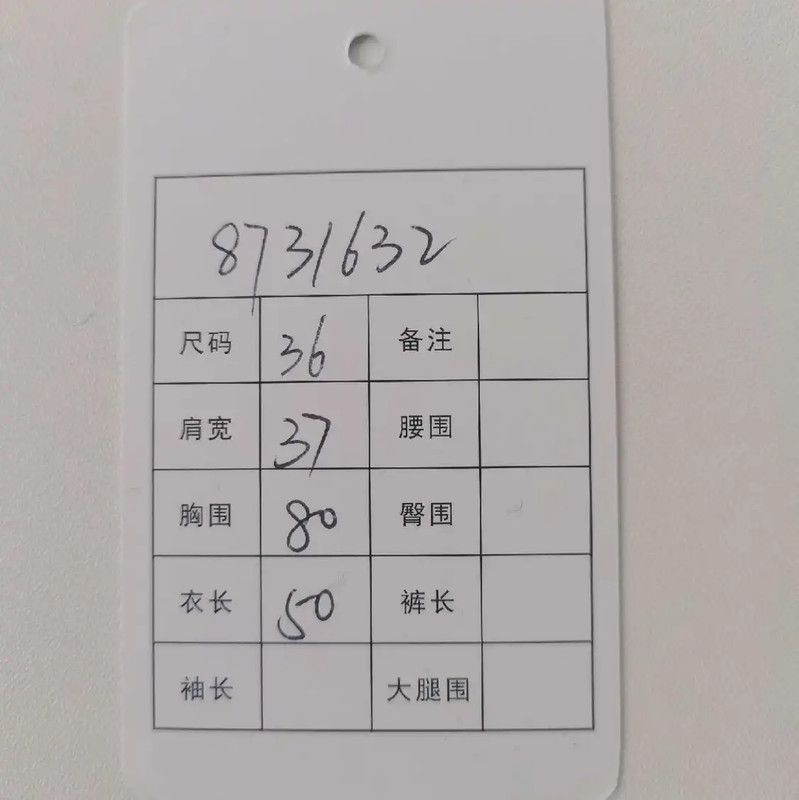 8731632
尺码 36 备注
肩宽 37 腰围
胸围 80 臀围
衣长 50 裤长
袖长 大腿围